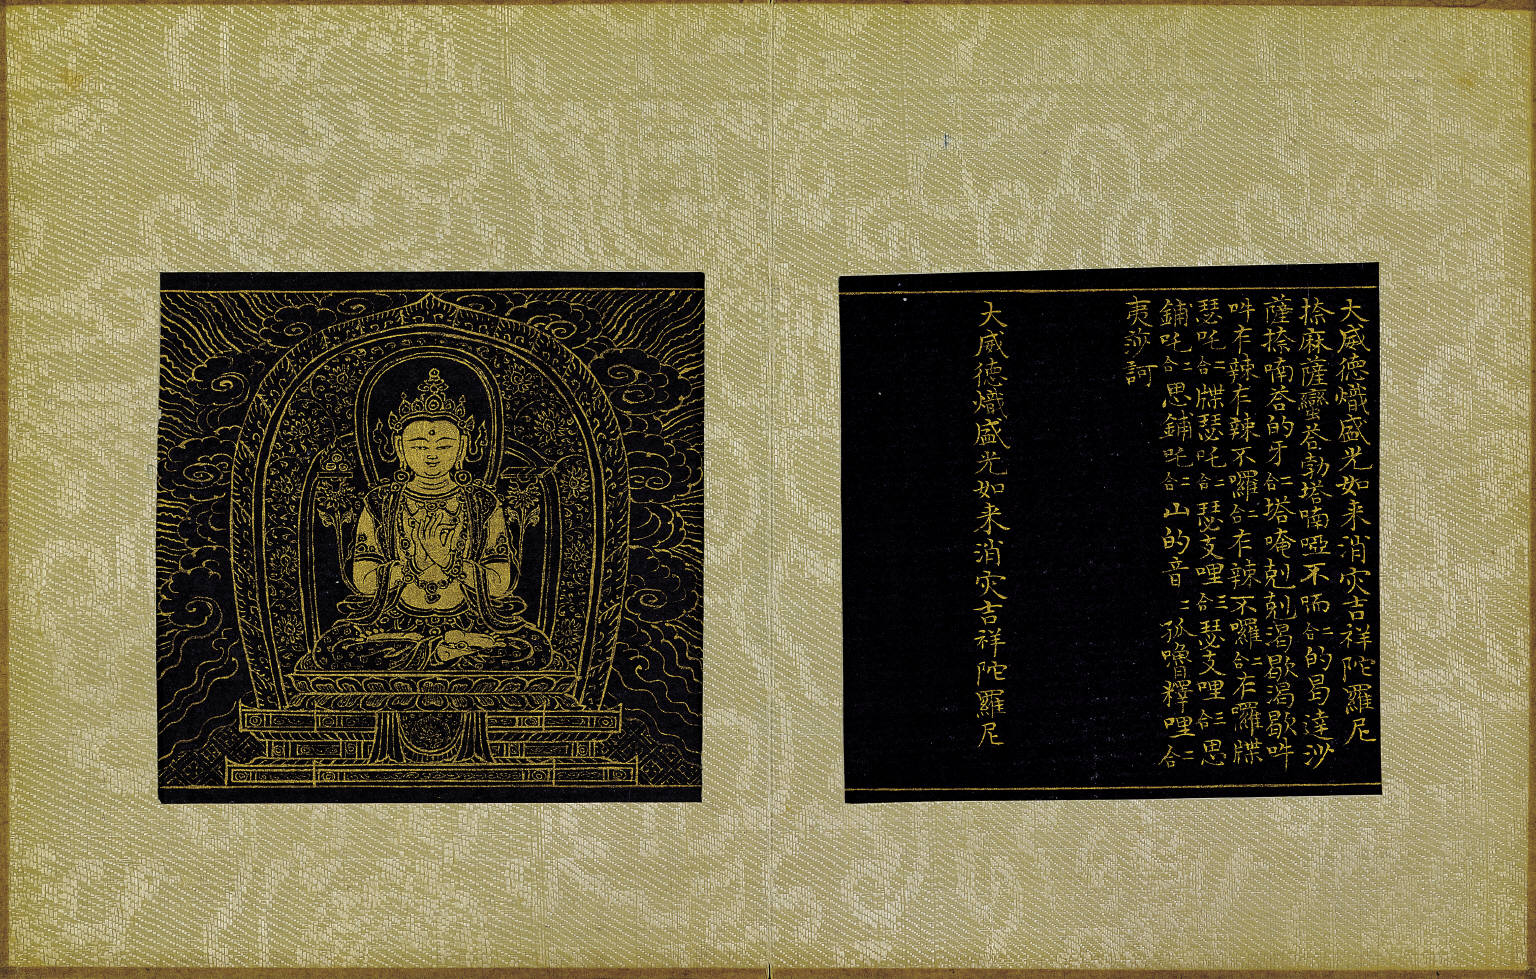 大威德熾盛光如来消灾吉祥陀羅尼
捺麻薩䜌荅勃塔喃啞不㗄二合的曷達沙
薩捺喃荅的牙二合塔唵剋剋渴歇渴歇吽
吽在辣在辣不囉二合在辣不囉二合在囉牒
瑟吒二合牒瑟吒二合瑟支哩三合瑟支哩三合思
鋪吒二合思鋪吒二合山的音二孤嚕釋哩二合
夷莎訶
大威德熾盛光如来消灾吉祥陀羅尼